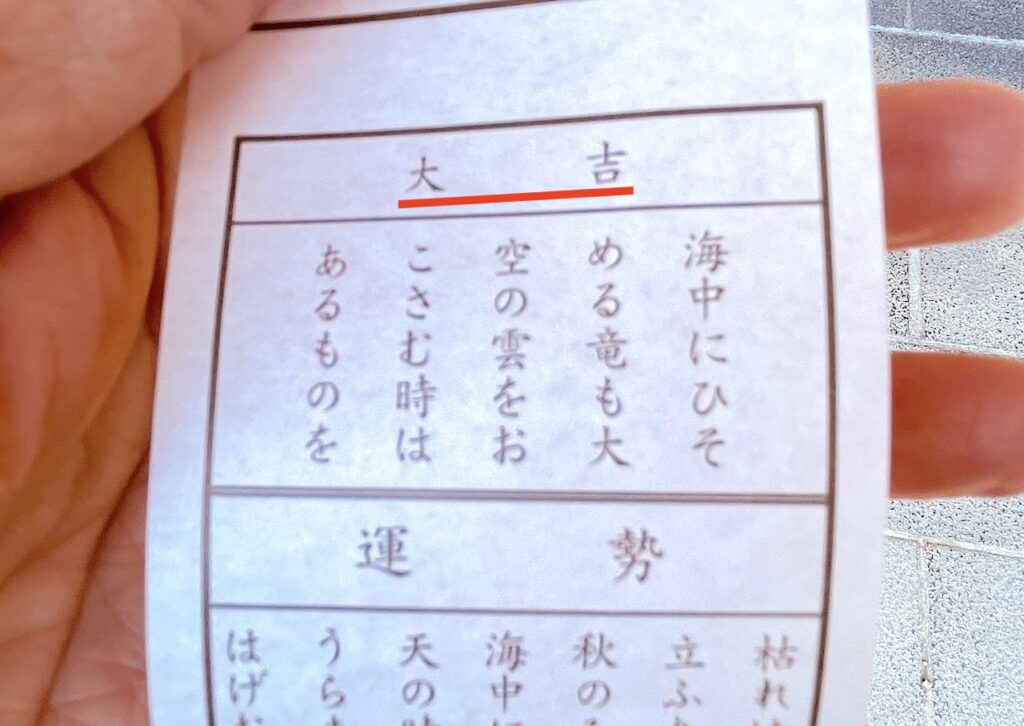 大吉
海中にひそ
める竜も大
空の雲をお
こさむ時は
あるものを
運勢
枯れ
立ふ
秋の
海中に
天の時
うらま
はげむ